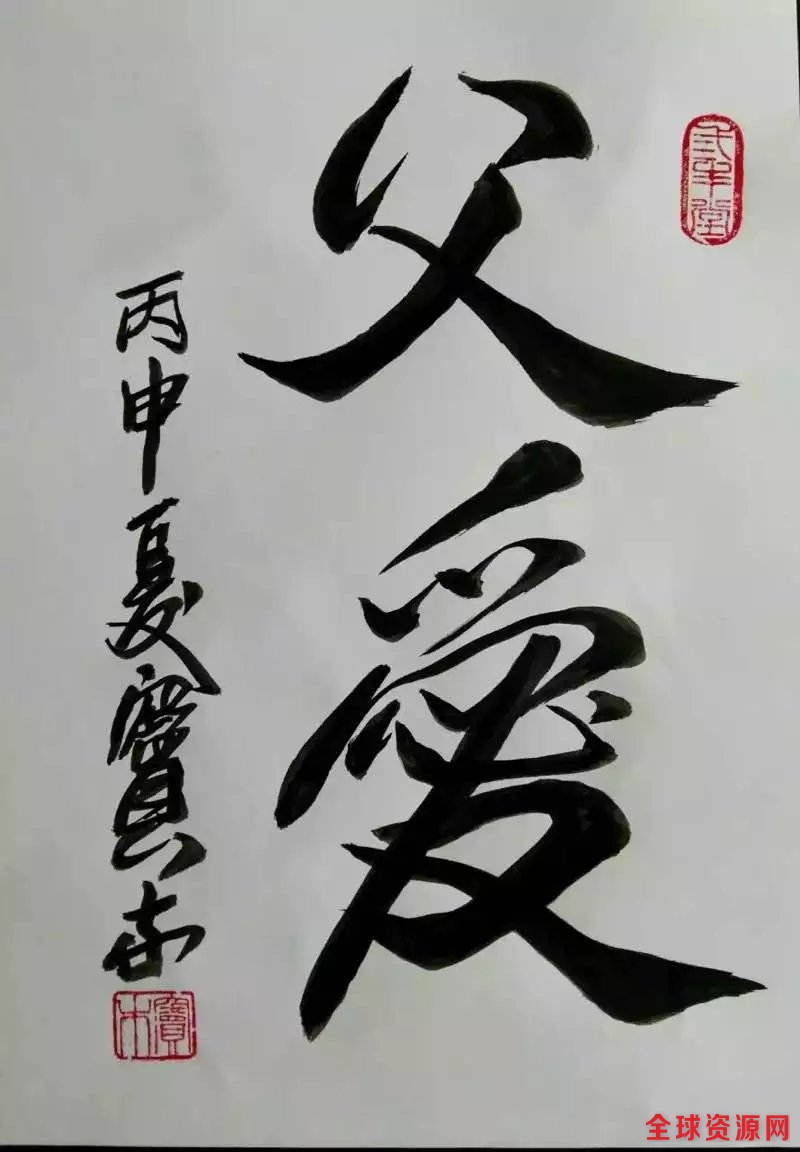 父愛
丙申夏寶
全球资源网